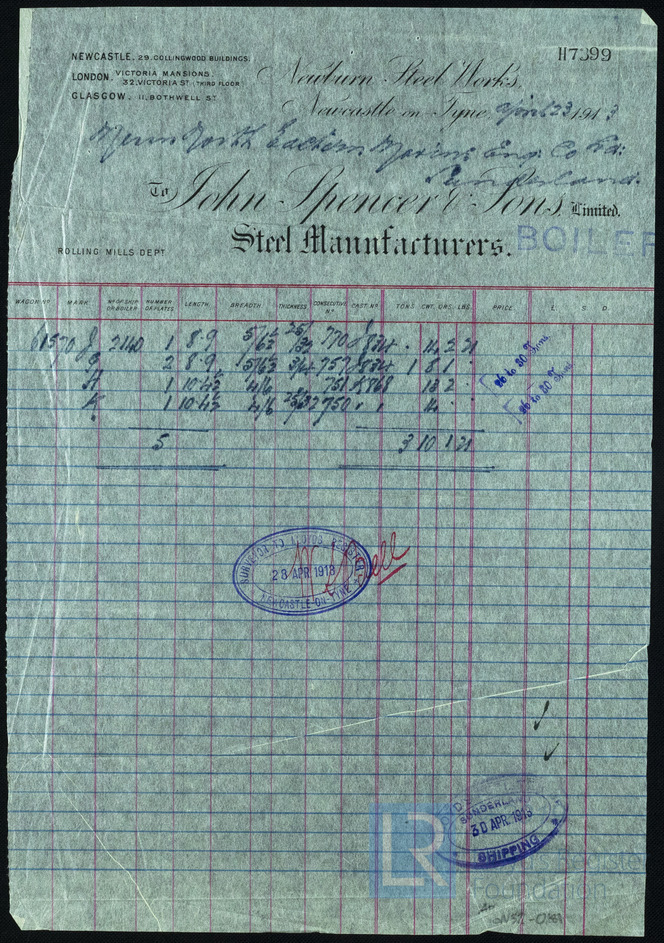 H7399
NEWCASTLE. 29. COLLINGWOOD BUILDINGS.
LONDON. VICTORIA MANSIONS 32. VICTORIA ST. (THIRD FLOOR
GLASGOW. 11. BOTHWELL ST
Newburn Steel Works,
Newcastle on Tyne, April 23 1913
Messrs North Eastern Marine Eng. Co Ltd.
Sunderland.
To John Spencer & Sons, Limited.
Steel Manufacturers.
BOILER
ROLLING MILLS DEPT
WAGON No MARK No OF SHIP OR BOILER NUMBER OF PLATES LENGTH. BREADTH. THICKNESS CONSECUTIVE No CAST. No TONS CWT. QRS. LBS. PRICE £ S D
61570 J 2140 1 8·9 770 14 2 21
2 8·9 757 1 8 1 ·
H 1 4/6 751 13 2 ·
K 1 4/6 750 14 · ·
26 to 30 Tons.
26 to 30 Tons.
5 3 10 1 21
SURVEYOR TO LLOYDS REGISTER
28 APR. 1913
NEWCASTLE-ON-TYNE
SUNDERLAND
30 APR. 1913
SHIPPING
LR
Foundation